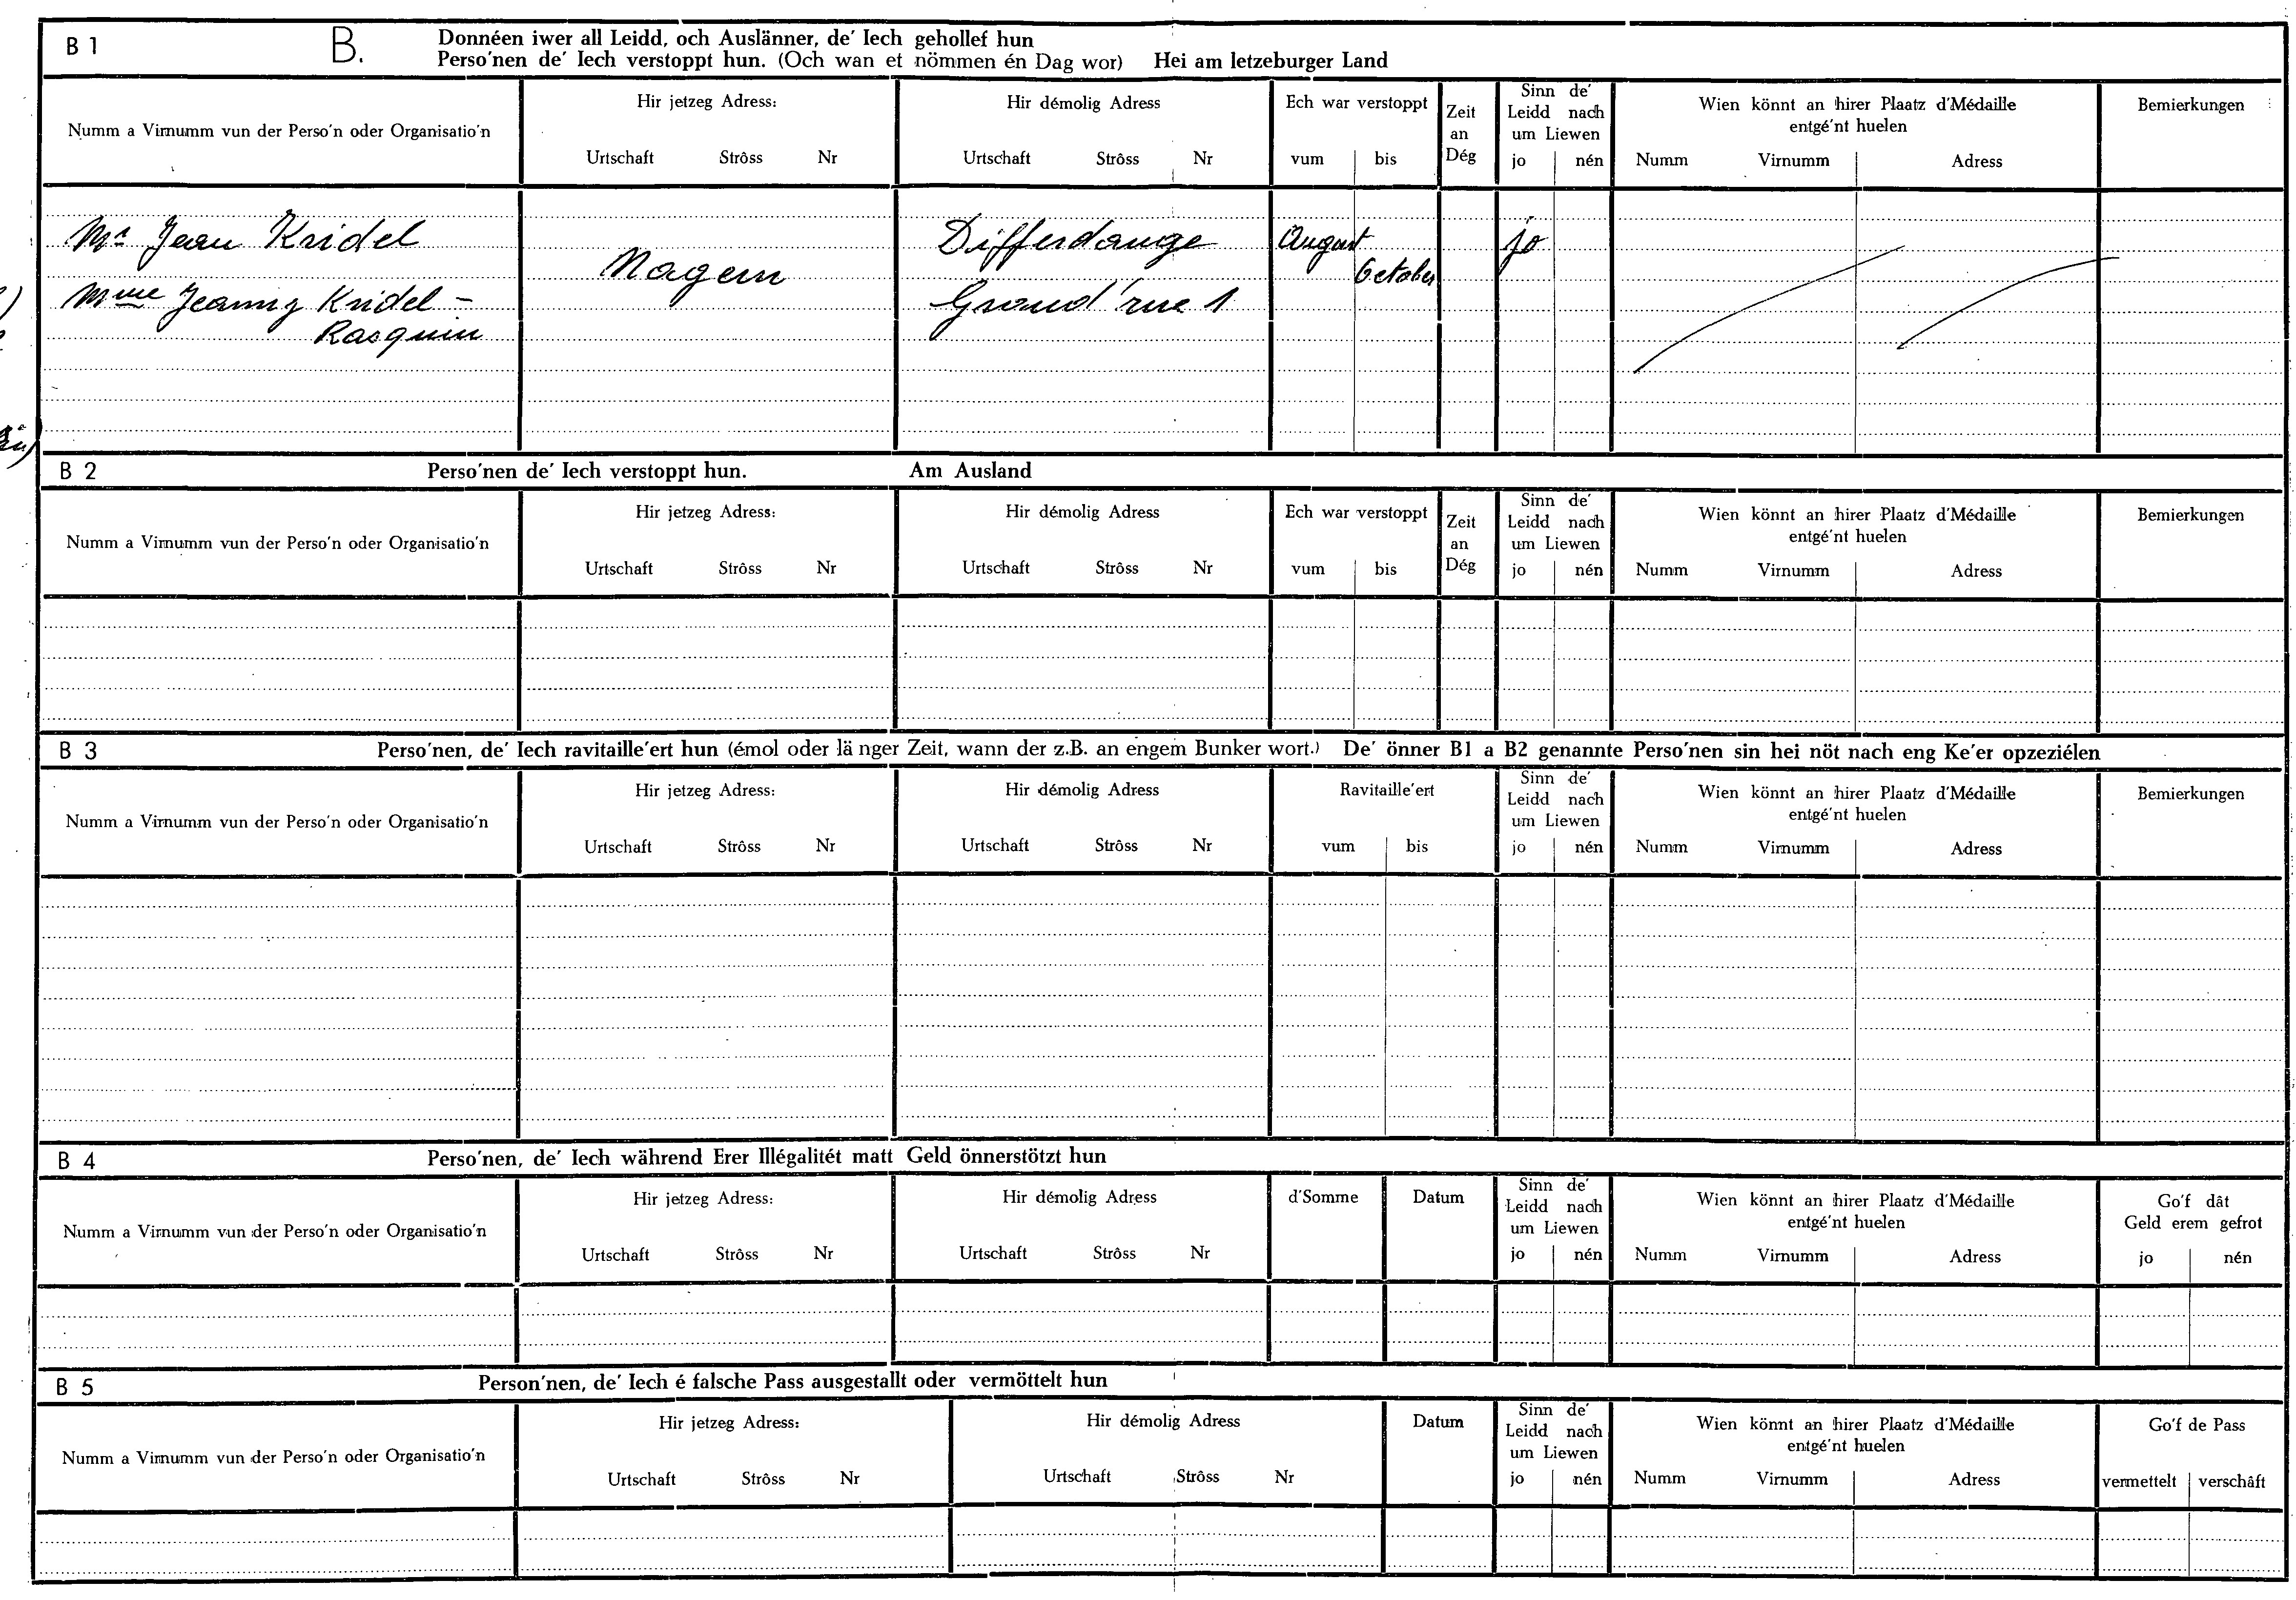 B 1
B.
Donnéen iwer all Leidd, och Auslänner, de' Iech gehollef hun
Perso'nen de' Iech verstoppt hun. (Och wan et nömmen én Dag wor) Hei am letzeburger Land
Numm a Virnumm vun der Perso'n oder Organisatio'n
Hir jetzeg Adress:
Urtschaft Strôss Nr
Hir démolig Adress
Urtschaft Strôss Nr
Ech war verstoppt
vum bis
Zeit
an
Dég
Sinn de'
Leidd nach
um Liewen
jo nén
Wien könnt an hirer Plaatz d'Médaille
entgé'nt huelen
Numm Virnumm Adress
Bemierkungen
Mr Jean Kridel
Mme Jeanny Kridel -
Rasquin
Nagem
Differdange
Grand'rue 1
August
October
jo
B 2
Perso'nen de' Iech verstoppt hun. Am Ausland
Numm a Virnumm vun der Perso'n oder Organisatio'n
Hir jetzeg Adress:
Urtschaft Strôss Nr
Hir démolig Adress
Urtschaft Strôss Nr
Ech war verstoppt
vum bis
Zeit
an
Dég
Sinn de'
Leidd nach
um Liewen
jo nén
Wien könnt an hirer Plaatz d'Médaille
entgé'nt huelen
Numm Virnumm Adress
Bemierkungen
B 3
Perso'nen, de' Iech ravitaille'ert hun (émol oder länger Zeit, wann der z.B. an engem Bunker wort.) De' önner B1 a B2 genannte Perso'nen sin hei nöt nach eng Ke'er opzeziélen
Numm a Virnumm vun der Perso'n oder Organisatio'n
Hir jetzeg Adress:
Urtschaft Strôss Nr
Hir démolig Adress
Urtschaft Strôss Nr
Ravitaille'ert
vum bis
Sinn de'
Leidd nach
um Liewen
jo nén
Wien könnt an hirer Plaatz d'Médaille
entgé'nt huelen
Numm Virnumm Adress
Bemierkungen
B 4
Perso'nen, de' Iech während Erer Illégalitét matt Geld önnerstötzt hun
Numm a Virnumm vun der Perso'n oder Organisatio'n
Hir jetzeg Adress:
Urtschaft Strôss Nr
Hir démolig Adress
Urtschaft Strôss Nr
d'Somme
Datum
Sinn de'
Leidd nach
um Liewen
jo nén
Wien könnt an hirer Plaatz d'Médaille
entgé'nt huelen
Numm Virnumm Adress
Go'f dât
Geld erem gefrot
jo nén
B 5
Person'nen, de' Iech é falsche Pass ausgestallt oder vermöttelt hun
Numm a Virnumm vun der Perso'n oder Organisatio'n
Hir jetzeg Adress:
Urtschaft Strôss Nr
Hir démolig Adress
Urtschaft Strôss Nr
Datum
Sinn de'
Leidd nach
um Liewen
jo nén
Wien könnt an hirer Plaatz d'Médaille
entgé'nt huelen
Numm Virnumm Adress
Go'f de Pass
vermettelt verschâft